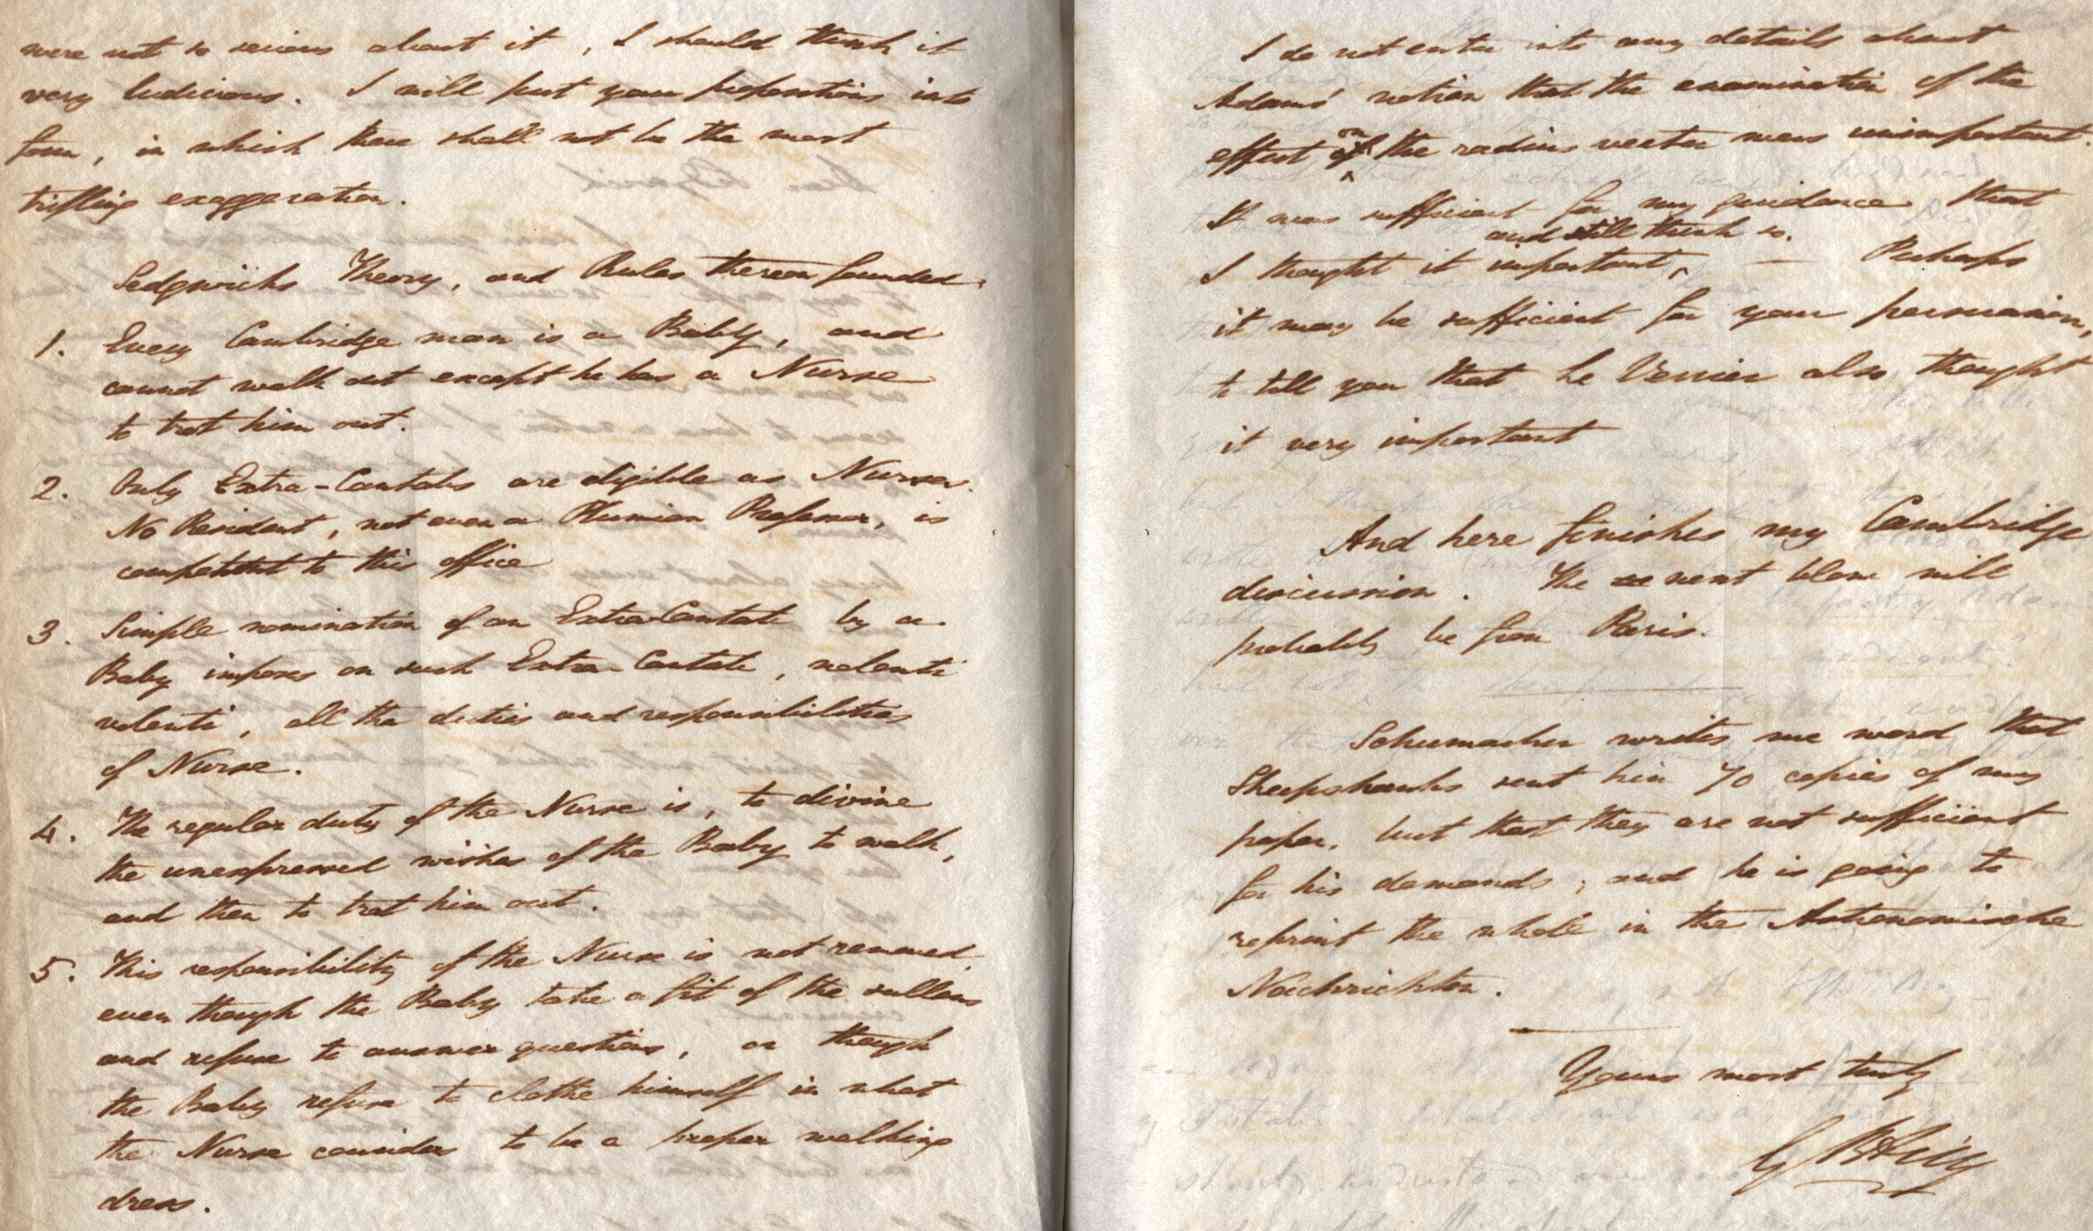 were not so serious about it, I should think it
very ludicrous. I will put your propositions into
form, in which there shall not be the most
trifling exaggeration.
Sedgwick's Theory, and Rules thereon founded.
1. Every Cambridge man is a Baby, and
cannot walk out except he has a Nurse
to trot him out.
2. Only Extra-Cantabs are eligible as Nurses.
No Resident, not even a Plumian Professor, is
competent to this office
3. Simple nomination of an Extra-Cantab by a
Baby imposes on such Extra-Cantab, nolenti
volenti, all the duties and responsibilities
of Nurse.
4. The regular duty of the Nurse is, to divine
the unexpressed wishes of the Baby to walk,
and then to trot him out.
5. This responsibility of the Nurse is not removed,
even though the Baby take a fit of the sullens
and refuse to answer questions, or though
the Baby refuse to clothe himself in what
the Nurse considers to be a proper walking
dress.
I do not enter into any details about
Adams' notion that the examination of the
effect on the radius vector was unimportant.
It was sufficient for my guidance that
I thought it important, and still think so. — Perhaps
it may be sufficient for your persuasion,
to tell you that Le Verrier also thought
it very important
And here finishes my Cambridge
discussion. The next blow will
probably be from Paris.
Schumacher writes me word that
Sheepshanks sent him 70 copies of my
paper, but that they are not sufficient
for his demands, and he is going to
reprint the whole in the Astronomische
Nachrichten.
Yours most truly
G B Airy